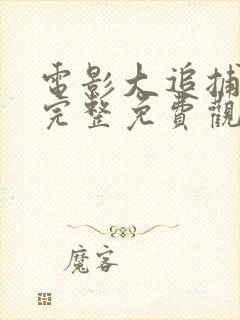 電影大追捕
完整免費觀
魔客